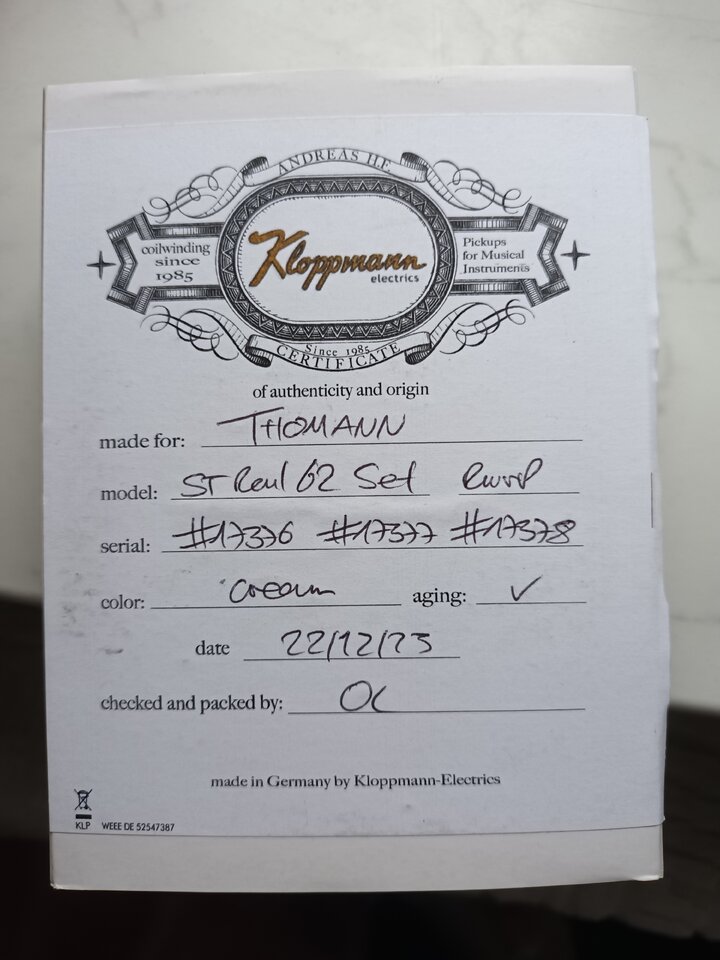 ANDREAS H.F.
coilwinding
since
1985
Kloppmann
electrics
Pickups
for Musical
Instruments
Since 1985
CERTIFICATE
of authenticity and origin
made for: THOMANN
model: ST Real 62 Set RWRP
serial: #17376 #17377 #17378
color: cream aging: ✓
date 22/12/23
checked and packed by:
made in Germany by Kloppmann-Electrics
KLP WEEE DE 52547387